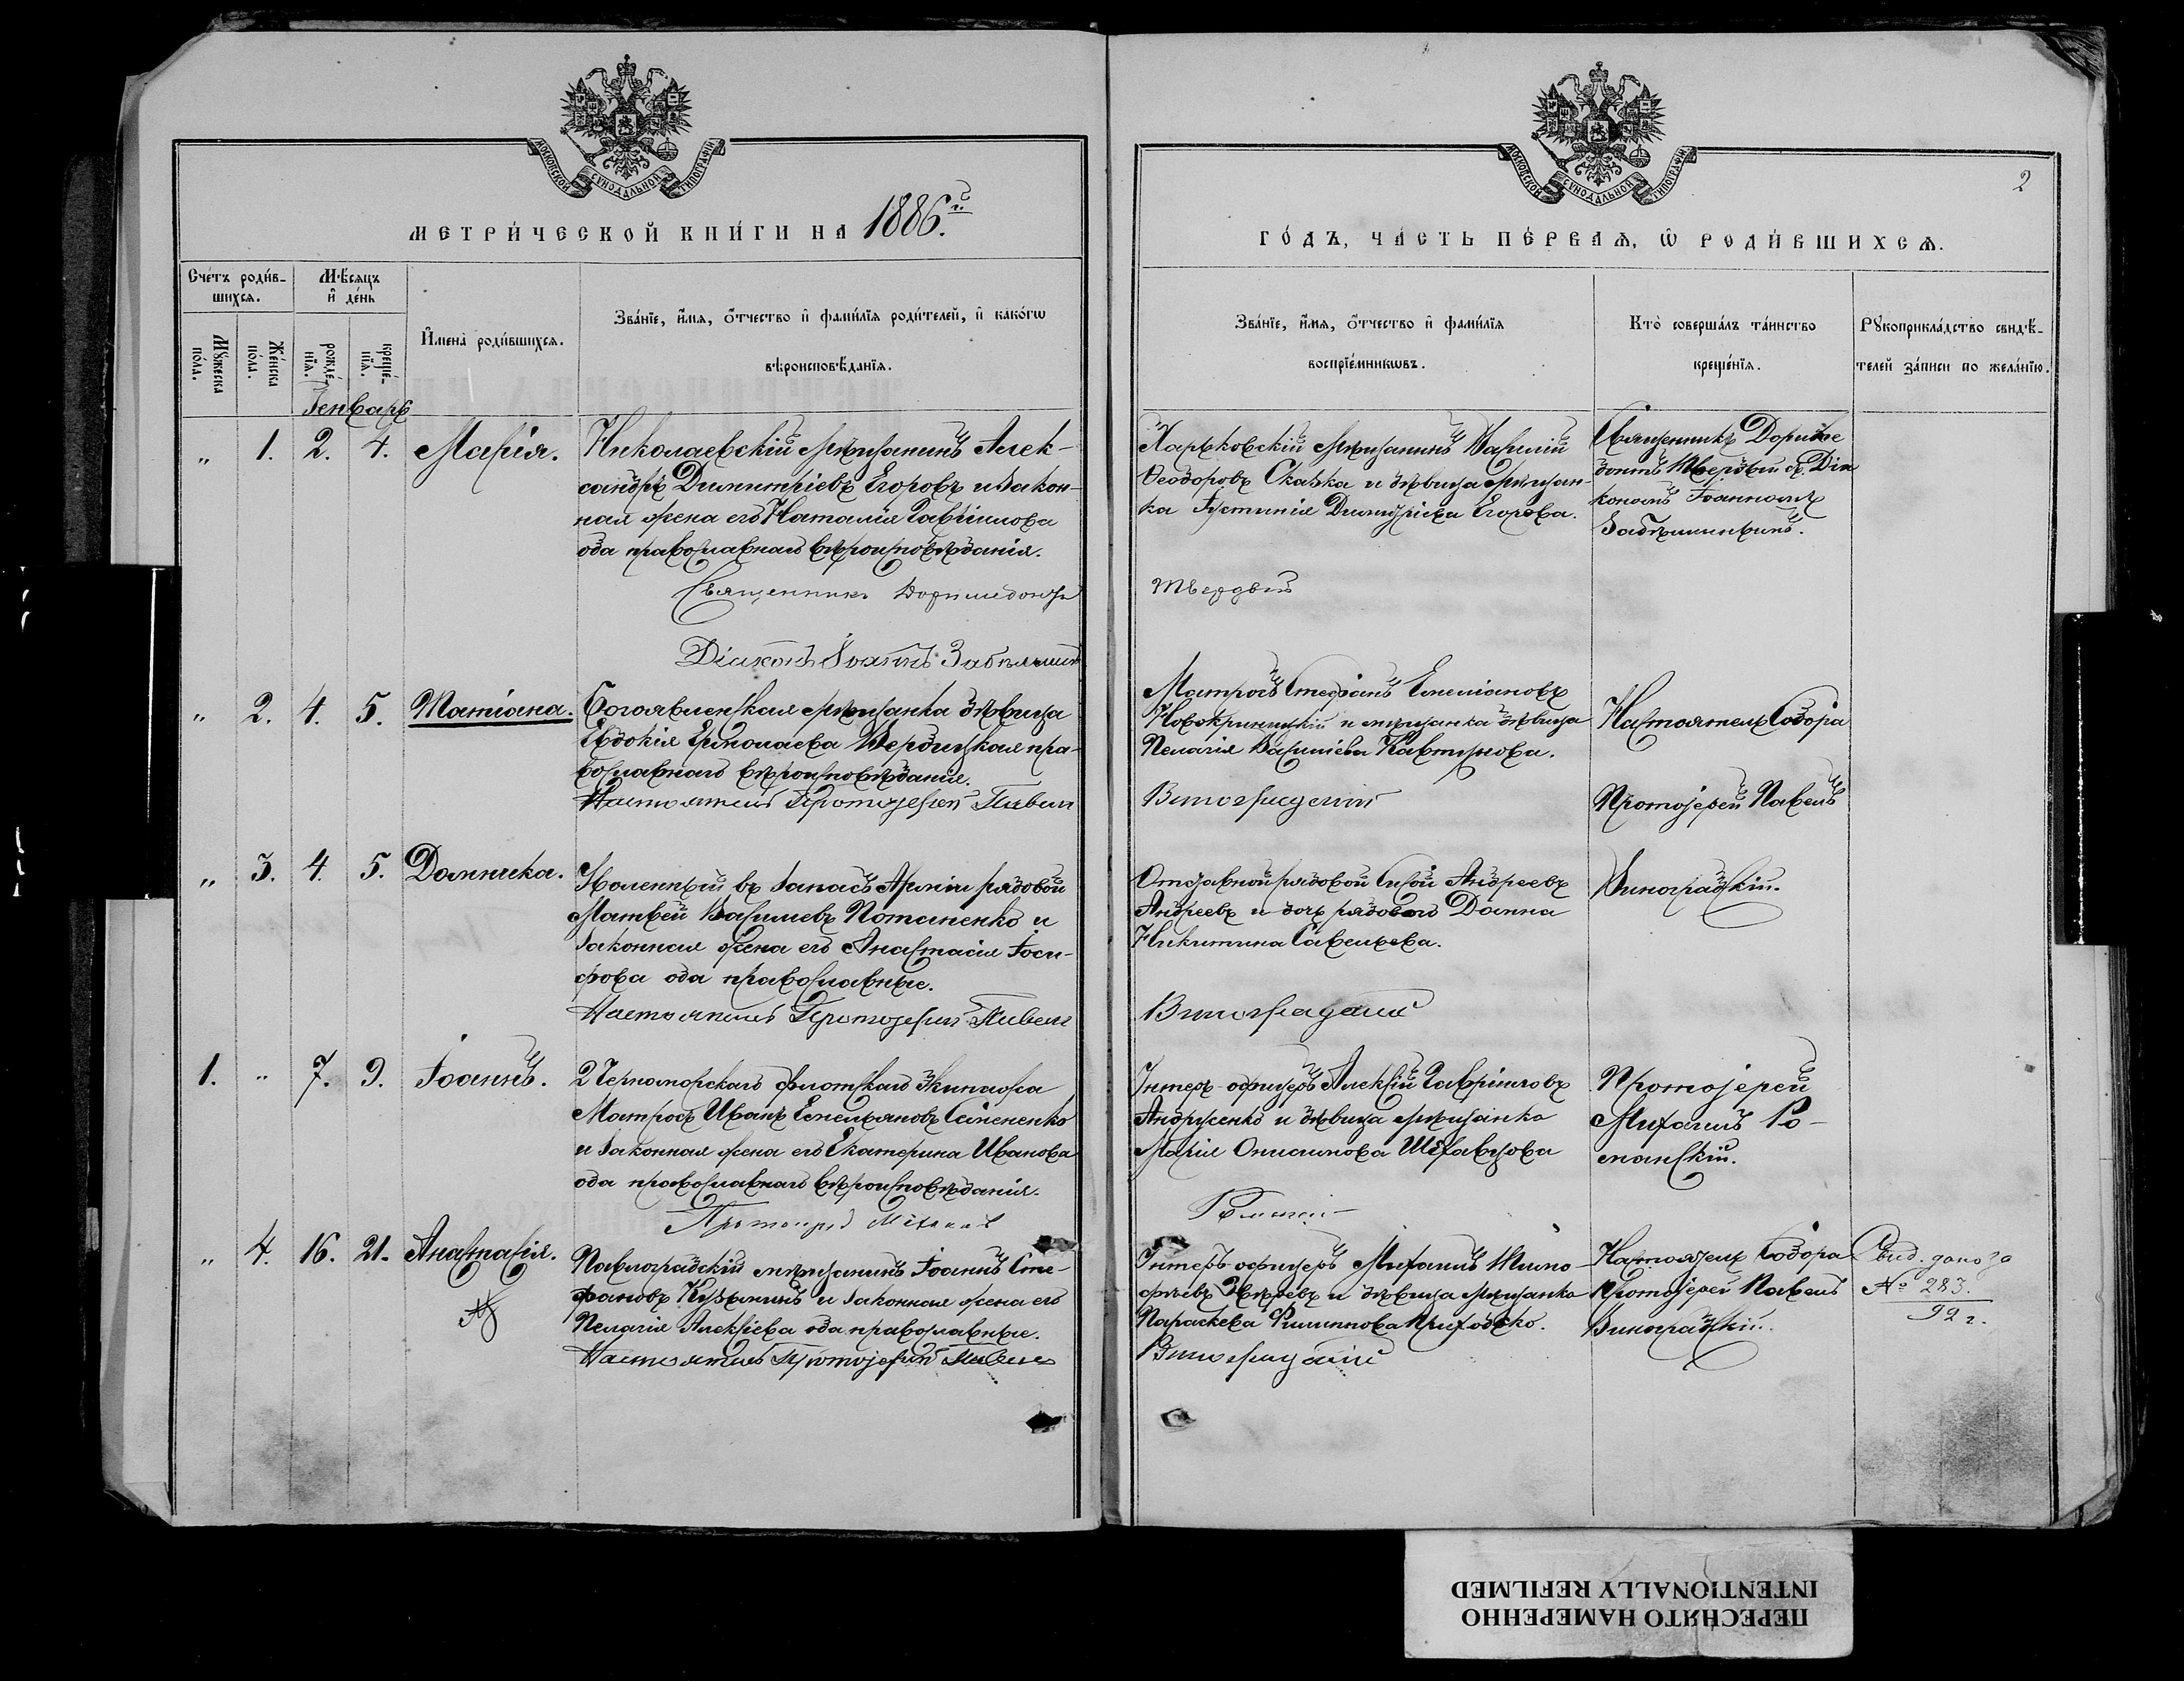 МОСКОВСКОЙ СѴНОДАЛЬНОЙ ТИПОГРАФІИ
МЕТРИ́ЧЕСКОЙ КНИ́ГИ НА 1886.г.
Сче́тъ роди́в-
шихсѧ.
Мѣ́сѧцъ
и҆ де́нь
Мꙋ́жеска
по́ла.
Же́нска
по́ла.
рожде́-
нїѧ.
креще́-
нїѧ.
И҆мена̀ роди́вшихсѧ.
Зва́нїе, и҆́мѧ, ѻ҆́тчество и҆ фами́лїѧ роди́телей, и҆ како́гѡ
вѣроисповѣ́данїѧ.
Генварь
„ 1. 2. 4. Марія.
Николаевскій мѣщанинъ Алек-
сандръ Димитріевъ Егоровъ и закон-
ная жена его Наталія Гавриилова
оба православнаго вѣроисповѣданія.
Священникъ Доримедонтъ
Діаконъ Іоаннъ
„ 2. 4. 5. Татіана.
Богоявленская мѣщанка дѣвица
Евдокія Ермолаева Твердицкая пра-
вославнаго вѣроисповѣданія.
Настоятель Протоіерей Павелъ
„ 3. 4. 5. Домника.
Уволенный въ запасъ Арміи рядовой
Матвей Васильевъ Потапенко и
законная жена его Анастасія Іоси-
фова оба православные.
Настоятель Протоіерей Павелъ
1. „ 7. 9. Іоаннъ.
2 Черноморскаго флотскаго Экипажа
Матросъ Иванъ Емельяновъ Семененко
и законная жена его Екатерина Иванова
оба православнаго вѣроисповѣданія.
Протоіерей Михаилъ
„ 4. 16. 21. Анастасія.
Павлоградскій мѣщанинъ Іоаннъ Сте-
фановъ Кузьминъ и законная жена его
Пелагія Алексіева оба православные.
Настоятель Протоіерей Павелъ
МОСКОВСКОЙ СѴНОДАЛЬНОЙ ТИПОГРАФІИ
2
ГО́ДЪ, ЧА́СТЬ ПЕ́РВАѦ, Ѡ҆ РОДИ́ВШИХСѦ.
Зва́нїе, и҆́мѧ, ѻ҆́тчество и҆ фами́лїѧ
воспрїе́мникѡвъ.
Кто̀ соверша́лъ та́инство
креще́нїѧ.
Рꙋкоприкла́дство свидѣ́-
телей за́писи по жела́нїю.
Харьковскій мѣщанинъ Василій
Ѳеодоровъ Сказка и дѣвица мѣщан-
ка Іустинія Димитріева Егорова.
Священникъ Дориме
донтъ Твердый съ Діа
кономъ Іоанномъ
Твердый
Матросъ Стефанъ Емеліановъ
Новокриницкій и мѣщанка дѣвица
Пелагія Василіева Кавтунова.
Виноградскій
Настоятель Собора
Протоіерей Павелъ
Виноградскій.
Отставной рядовой Сисой Андреевъ
Андреевъ и дочь рядоваго Домна
Никитина Савельева.
Виноградскій
Унтеръ-офицеръ Алексій Гавріиловъ
Андрусенко и дѣвица мѣщанка
Марія Онисимова Шевцова
Романскій
Протоіерей
Михаилъ Ро-
манскій.
Унтеръ-офицеръ Михаилъ Тимо-
феевъ и дѣвица мѣщанка
Параскева Филиппова Приходько.
Виноградскій
Настоятель Собора
Протоіерей Павелъ
Виноградскій.
Свид. дано за
№ 283.
92 г.
ПЕРЕСНЯТО НАМЕРЕННО
INTENTIONALLY REFILMED